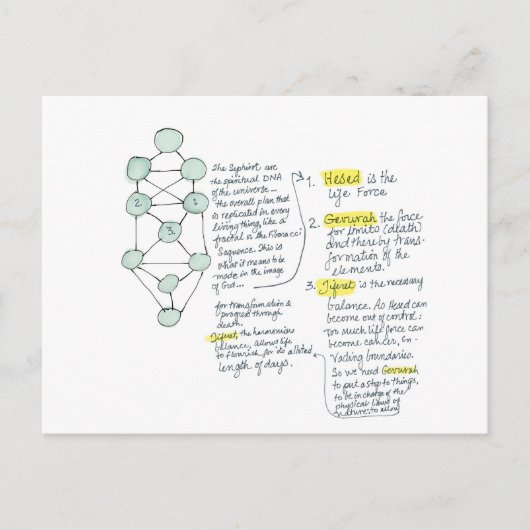 2
1
3.
The Sephirot are
the spiritual DNA
of the universe —
the overall plan that
is replicated in every
living thing, like a
fractal or the Fibonacci
Sequence. This is
what it means to be
made in the image
of God...
1. Hesed is the
Life Force
2. Gevurah the force
for limits (death)
and thereby trans-
formation of the
elements.
3. Tiferet is the necessary
balance. As Hesed can
become out of control:
Too much life force can
become cancer, in-
vading boundaries.
So we need Gevurah
to put a stop to things,
to be in charge of the
physical laws of
nature: to allow
for transformation &
progress through
death.
Tiferet, the harmonious
balance, allows life
to flourish for its alloted
length of days.